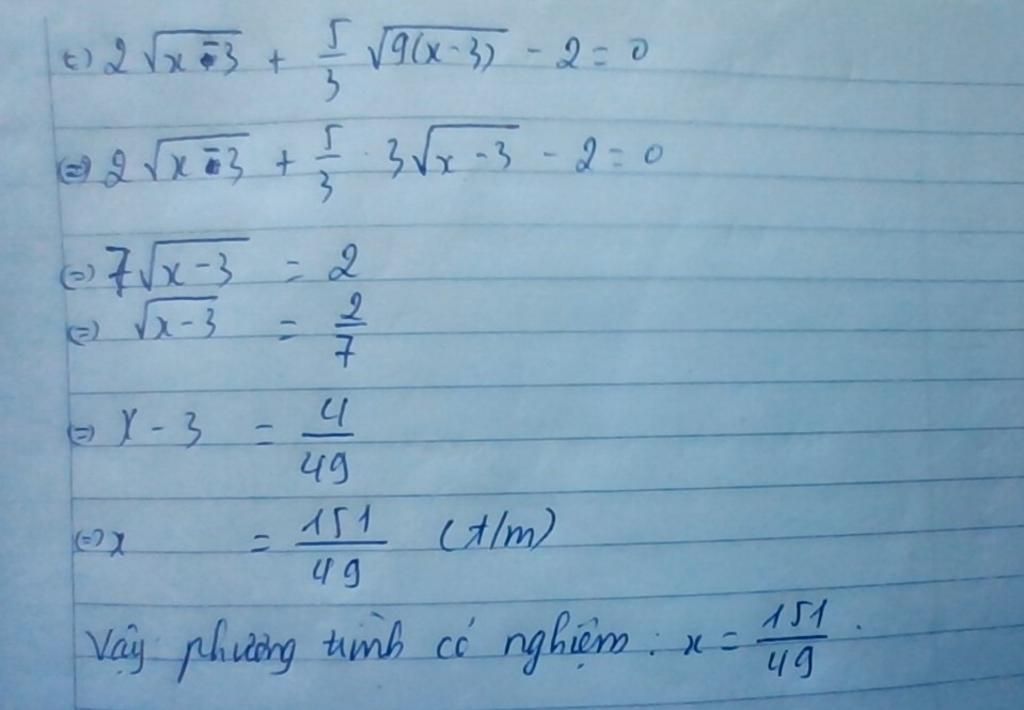 c) 2√(x-3) + 5/3 √(9(x-3)) - 2 = 0
(=) 2√(x-3) + 5/3 . 3√(x-3) - 2 = 0
(=) 7√(x-3) = 2
(=) √(x-3) = 2/7
(=) x - 3 = 4/49
(=) x = 151/49 (t/m)
Vậy phương trình có nghiệm: x = 151/49.